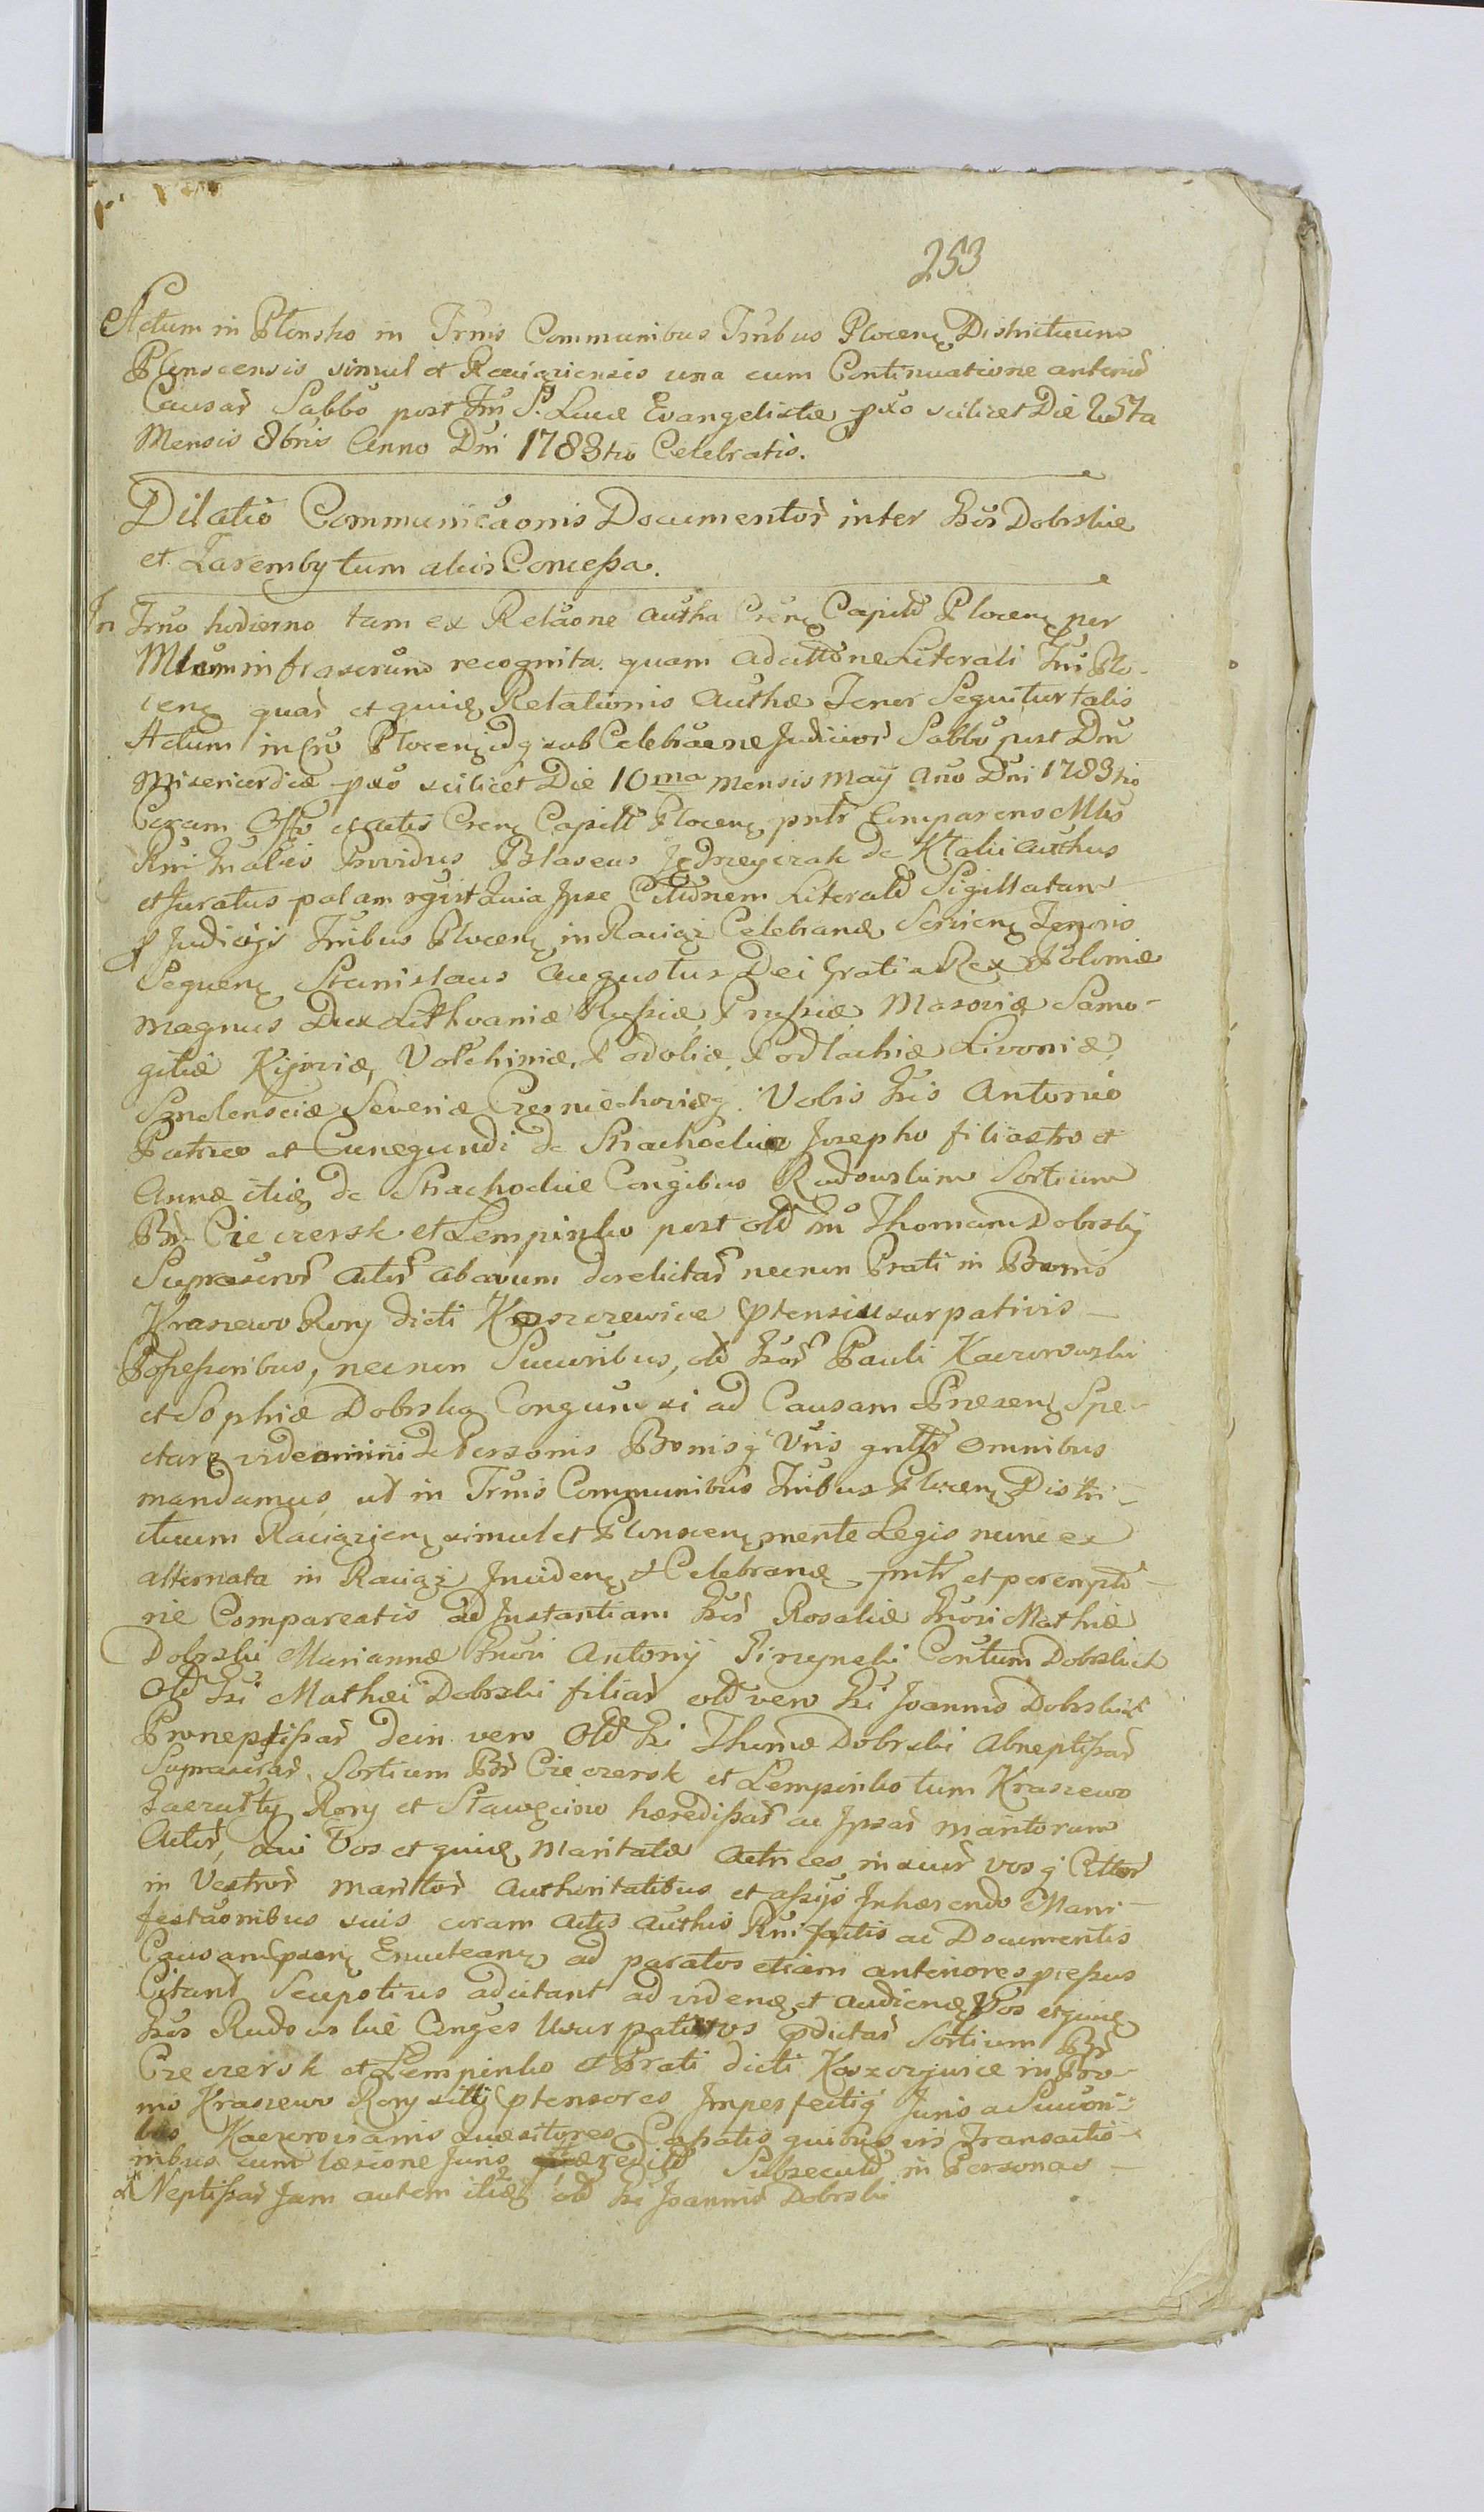 253
Actum in Plonsko in Trnis Communibus Trribus Plocen Districtuum
Plonscensis simul et Raciąziensis una cum Continuatione anterior
Causar Sabbo post Fm S. Lucæ Evangelistæ pxo scilicet Die 25ta
Mensis 8bris Anno Dni 1783tio Celebratis.
Dilatio Communicaonis Documentor inter Gsos Dobrskie
et Zaremby tum alios Concessa.
In Trno hodierno tam ex Relaone autha Cren Capitli Plocen per
Mlem infrascrum recognita quam adcittone Literali Trri Plo-
cen quar et quid Relationis Authæ Tenor Sequitur talis
Actum in Cro Plocen idq sub Celebraone Judicior Sabbo post Dni
Misericordiæ pxo scilicet Die 10ma mensis May Ano Dni 1783tio
Coram Offo et actis Cren Capitl Plocen pntr Comparens Mlis
Rni Gnalis Providus Blaseus Jędrzeyczak de Ktalii authus
et Juratus palam rgvit Quia Ipse Citaonem Literald Sigillatam
p Judicijs Trribus Plocen in Raciąz Celebrand Servien Tenoris
Sequen Stanislaus Augustus Dei Gratia Rex Poloniæ
Magnus Dux Lithvaniæ Russiæ, Prussiæ, Masoviæ Samo-
gitiæ Kijoviæ, Volhiniæ, Podoliæ, Podlachiæ Livoniæ,
Smolensciæ Severiæ Czerniechoviæq. Vobis Gsis Antonio
Patruo et Cunegundi de Strachockie Josepho filiastro et
Annæ itid de Strachockie Congibus Rudowskim Sortium
Br Ciecrersk et Lempinko post old Gsm Thomam Dobrski
Suprascror Actor abavum derelictar necnon Prati in Bonis
Kraszewo Rory dicti Koszczewice ptensiusurpativis -
Possessoribus, necnon Succoribus, old Gsor Pauli Kaczorowski
et Sophiæ Dobrska Congum si ad Causam Præsen Spe-
ctare videamini de Personis Bonisq Vris gnltr omnibus
mandamus, ut in Trnis Communibus Trribus Plocen Distri-
ctuum Raciązien simul et Plonscen mente Legis nunc ex
alternata in Raciąz Inciden et Celebrand pntr et perempto-
rie Compareatis ad Instantiam Gsor Rosaliæ Gnosi Mathiæ
Dobrski Mariannæ Gnosi Antonij Pirzynski Contum Dobrskich
Old Gsi Mathæi Dobrski filiar old vero Gsi Joannis Dobrski
Proneptissar dein vero Old Gsi Thomæ Dobrski Abneptissar
Suprascrar, Sortium Br Ciecrersk et Lempinko tum Kraszewo
Gaczułty Rory et Stawęcino hæredissar ac Ipsar maritorum
Actor, Qui Vos et quid Maritatæ Actrices, in suor vosq Cittor
in Vestror maritor Authoritatibus et assijs Inhærendo Mani-
festaonibus suis coram Actis Authis Rni factis ac Documentis
Causam pxen Enucteand ad paratos etiam anteriores pressus
Citant Seupotius adcitant ad viden et audien Vos etquid
Gsos Rudowskie Conges Usurpativos pdictar Sortium Br
Ciecrersk et Lempinko et Prati dicti Koszczywice in Bo-
nis Kraszewo Rory sitti ptensores Imperfectiq Juris a Succori-
bus Kaczorovianis quæsitores Cassatis quibusvis Transactio-
nibus cum læsione Juris hæredild Subsecutd in Personas -
Neptissar Jam autem itid old Gsi Joannis Dobrski